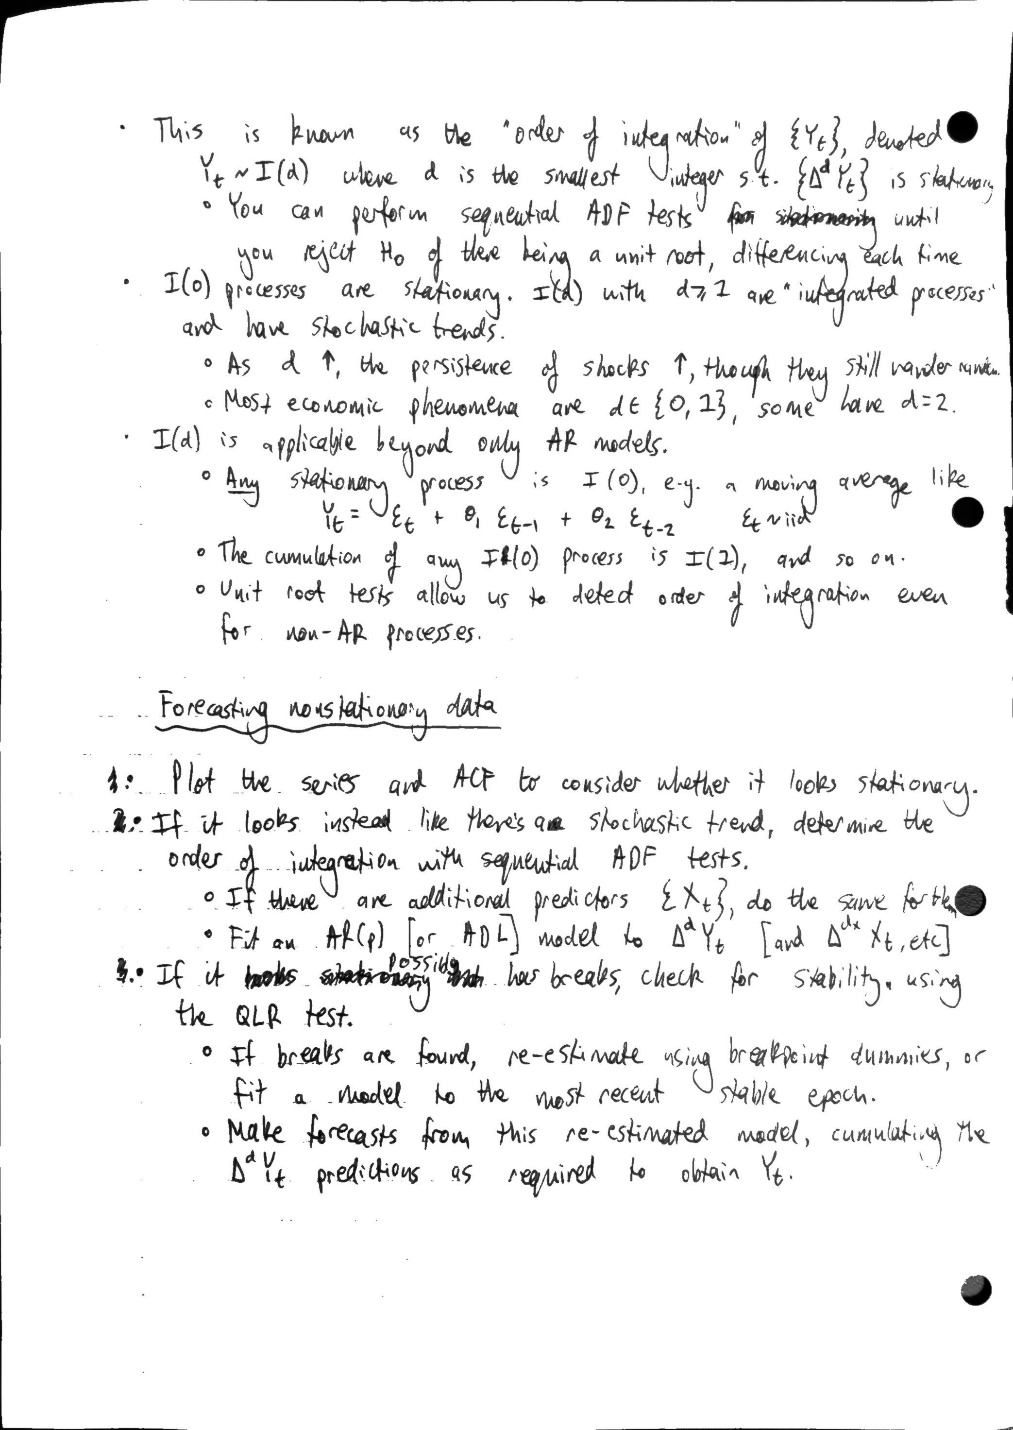 · This is known as the "order of integration" of {Yₜ}, denoted
Yₜ ~ I(d) where d is the smallest integer s.t. {Δᵈ Yₜ} is stationary
∘ You can perform sequential ADF tests for stationarity until
you reject H₀ of there being a unit root, differencing each time
· I(0) processes are stationary. I(d) with d ⩾ 1 are "integrated processes"
and have stochastic trends.
∘ As d ↑, the persistence of shocks ↑, though they still wander
∘ Most economic phenomena are d ∈ {0, 1}, some have d=2.
· I(d) is applicable beyond only AR models.
∘ Any stationary process is I(0), e.g. a moving average like
Yₜ = εₜ + θ₁ εₜ₋₁ + θ₂ εₜ₋₂ εₜ ~ iid
∘ The cumulation of any I(0) process is I(1), and so on.
∘ Unit root tests allow us to detect order of integration even
for non-AR processes.
Forecasting nonstationary data
1. Plot the series and ACF to consider whether it looks stationary.
2. If it looks instead like there's a stochastic trend, determine the
order of integration with sequential ADF tests.
∘ If there are additional predictors {Xₜ}, do the same for
∘ Fit an AR(p) [or ADL] model to Δᵈ Yₜ [and Δᵈˣ Xₜ, etc]
3. If it possibly has breaks, check for stability using
the QLR test.
∘ If breaks are found, re-estimate using breakpoint dummies, or
fit a model to the most recent stable epoch.
∘ Make forecasts from this re-estimated model, cumulating the
Δᵈ Yₜ predictions as required to obtain Yₜ.